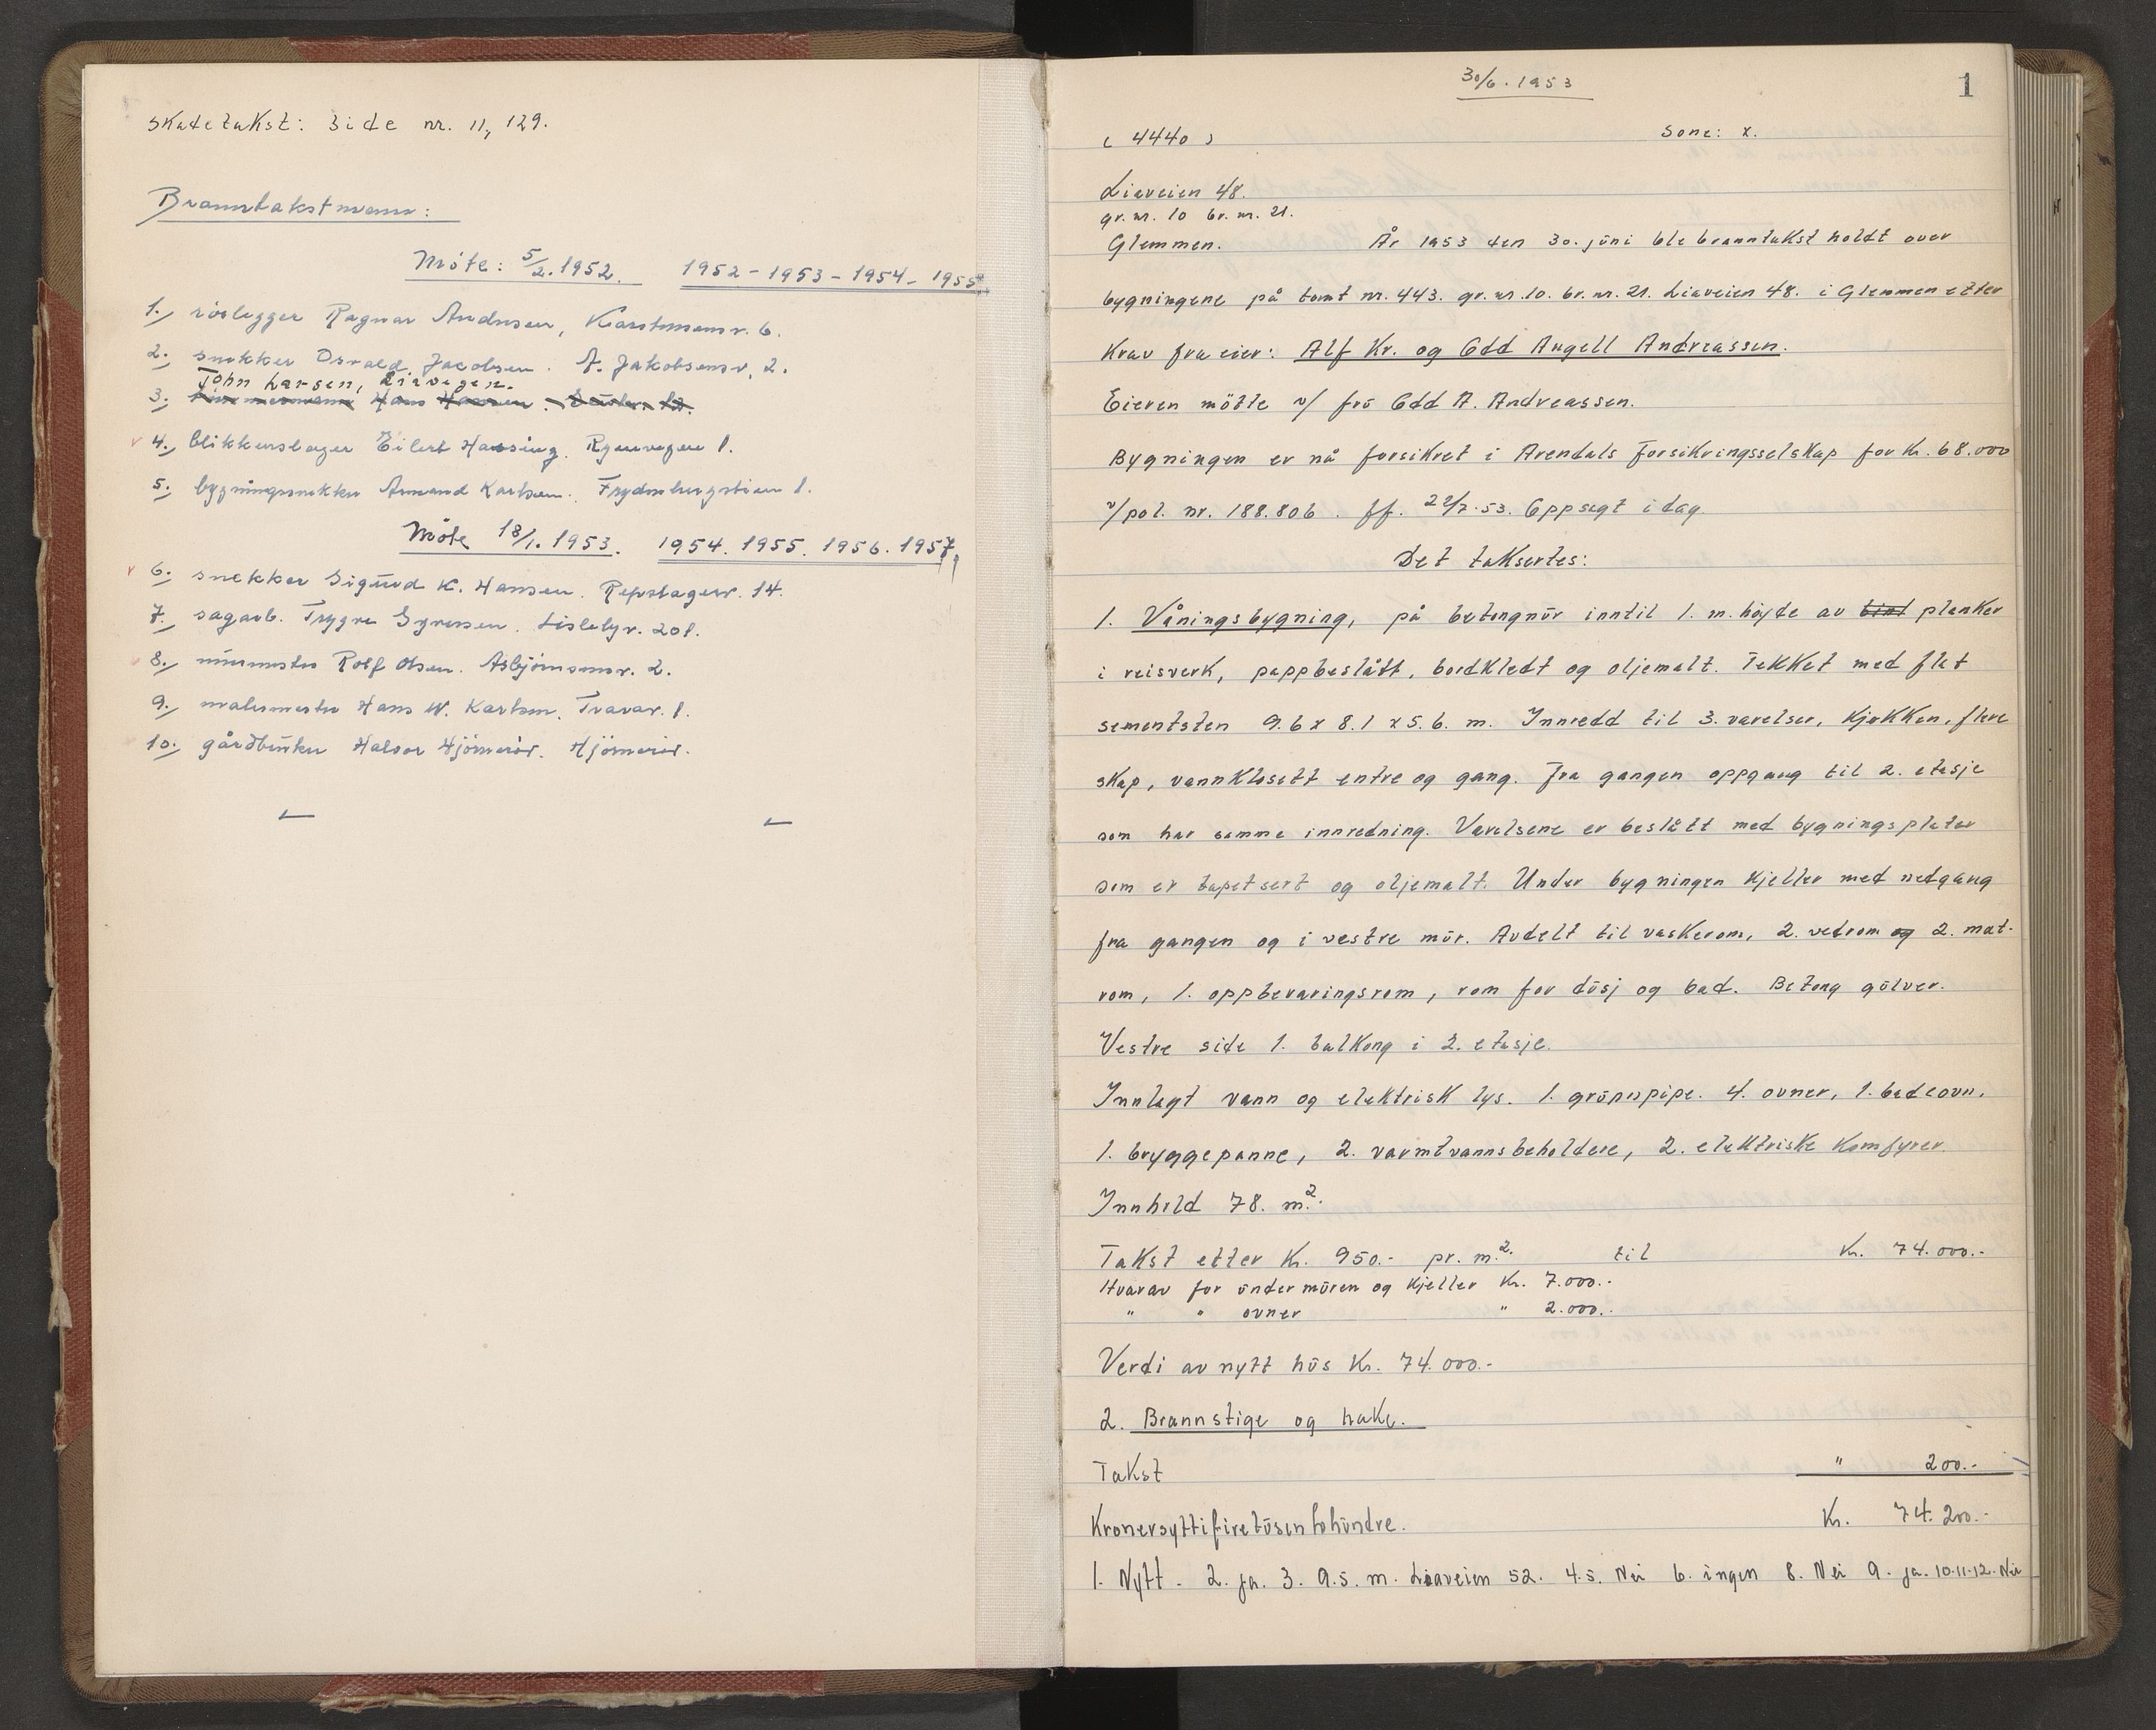 Skadetakst: Side nr. 11, 129.
Branntakstmenn:
Möte: 5/2.1952. 1952-1953-1954-1955
1., rörlegger Ragnar Andresen,
2. snekker Osvald Jacobsen. A. Jakobsensv. 2.
John Larsen, Liaveien.
3. Hans
4., blikkenslager Eilert 1.
5. bygningssnekker Armand Karlsen. Frydenbergstien 1.
Möte 18/1.1953. 1954. 1955. 1956. 1957.
6. snekker Sigurd K. Hansen. Repslagerv. 14.
7. sagarb. Trygve Syversen. Lislebyv. 201.
8. murmester Rolf Olsen. Asbjörnsensv. 2.
9., malermester Hans W. Karlsen. Travav. 1.
10., gårdbruker Halvor Hjörneröd. Hjörneröd.
30/6.1953
1
( 4440 ) Sone: X.
Liaveien 48.
gr. nr. 10 br. nr. 21.
Glemmen. År 1953 den 30. juni ble branntakst holdt over
bygningene på tomt nr. 443. gr. nr. 10. br. nr. 21. Liaveien 48. i Glemmen etter
Krav fra eier: Alf Kr. og Odd Angell Andreassen.
Eieren mötte v/ fru Odd A. Andreassen.
Bygningen er nå forsikret i Arendals Forsikringsselskap for Kr. 68.000
v/pol. nr. 188.806. ff. 22/7.53. Oppsagt idag
Det taksertes:
1. Våningsbygning, på betongmur inntil 1. m. höyde av bind planker
i reisverk, pappbeslått, bordkledt og oljemalt. Tekket med flat
sementsten 9.6 x 8.1 x 5.6. m. Innredd til 3. værelser, kjökken, flere
skap, vannklosett entre og gang. Fra gangen oppgang til 2. etasje
som har samme innredning. Værelsene er beslått med bygningsplater
som er tapetsert og oljemalt. Under bygningen kjeller med nedgang
fra gangen og i vestre mur. Avdelt til vaskerom, 2. vedrom og 2. mat-
rom, 1. oppbevaringsrom, rom for dusj og bad. Betong gulver.
Vestre side 1. balkong i 2. etasje.
Innlagt vann og elektrisk lys. 1. grunnpipe. 4. ovner, 1. badeovn,
1. bryggepanne, 2. varmtvannsbeholdere, 2. elektriske komfyrer.
Innhold 78. m².
Takst etter Kr. 950.- pr. m². til Kr. 74.000.-
Hvarav for undermuren og kjeller Kr. 7.000.-
" " ovner " 2.000.-
Verdi av nytt hus Kr. 74.000.-
2. Brannstige og hake.
Takst " 200.-
Kronersyttifiretusentohundre. Kr. 74.200.-
1. Nytt. 2. ja. 3. 9.5. m. Liaveien 52. 4.5. Nei 6. ingen 8. Nei 9. ja. 10.11.12. Nei